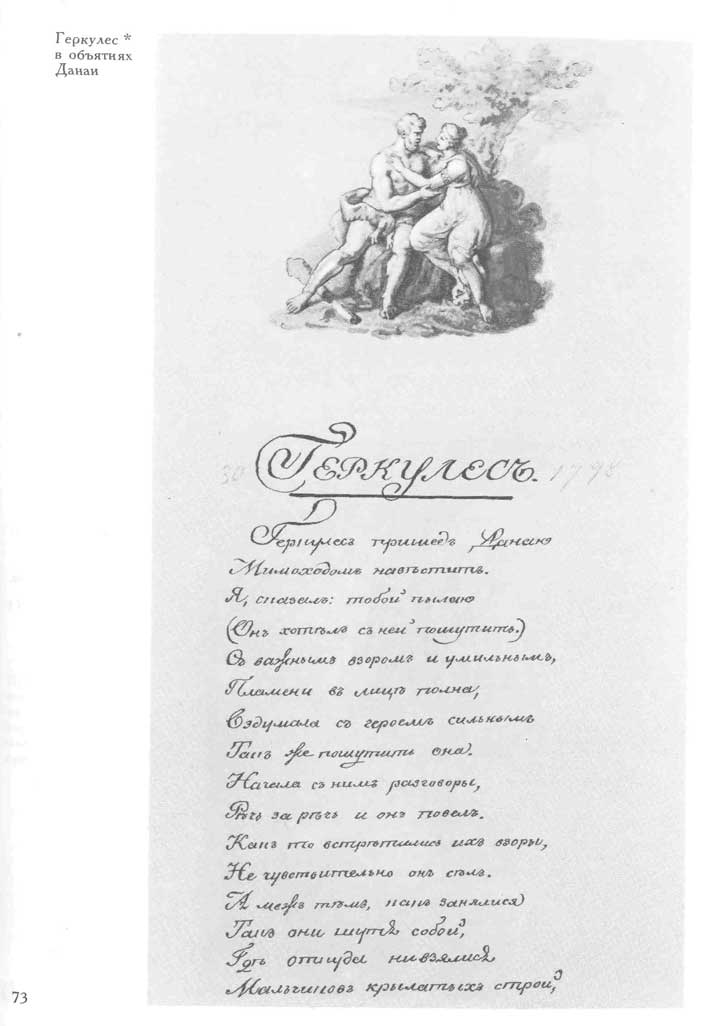 Геркулес *
в объятиях
Данаи
30 Геркулесъ. 1798
Геркулесъ пришедъ Данаю
Мимоходомъ навѣстить.
Я, сказалъ: тобой пылаю
(Онъ хотѣлъ съ ней пошутить.)
Съ важнымъ взоромъ и умильнымъ,
Пламени въ лицѣ полна,
Вздумала съ героемъ сильнымъ
Такъ же пошутить она.
Начала съ нимъ разговоры,
Рѣчь за рѣчь и онъ повелъ.
Какъ то встрѣтились ихъ взоры,
Не чувствительно онъ сѣлъ.
А межъ тѣмъ, какъ занялися
Такъ они шутя собой,
Гдѣ откуда ни взялися
Мальчиковъ крылатыхъ строй,
73